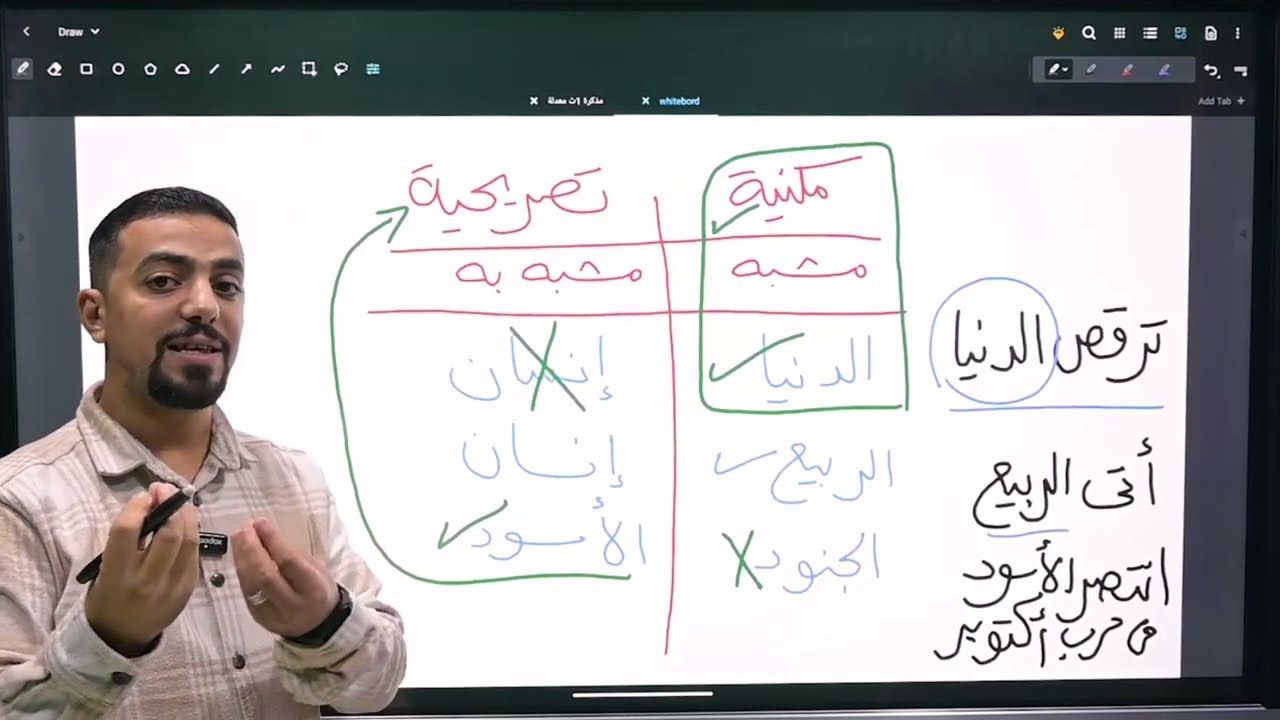 Draw
مذكرة 1ث معدلة
whitebord
Add Tab +
مكنية تصريحية
مشبه مشبه به
الدنيا إنسان
الربيع إنسان
الجنود الأسود
ترقص الدنيا
أتى الربيع
انتصر الأسود
في حرب أكتوبر